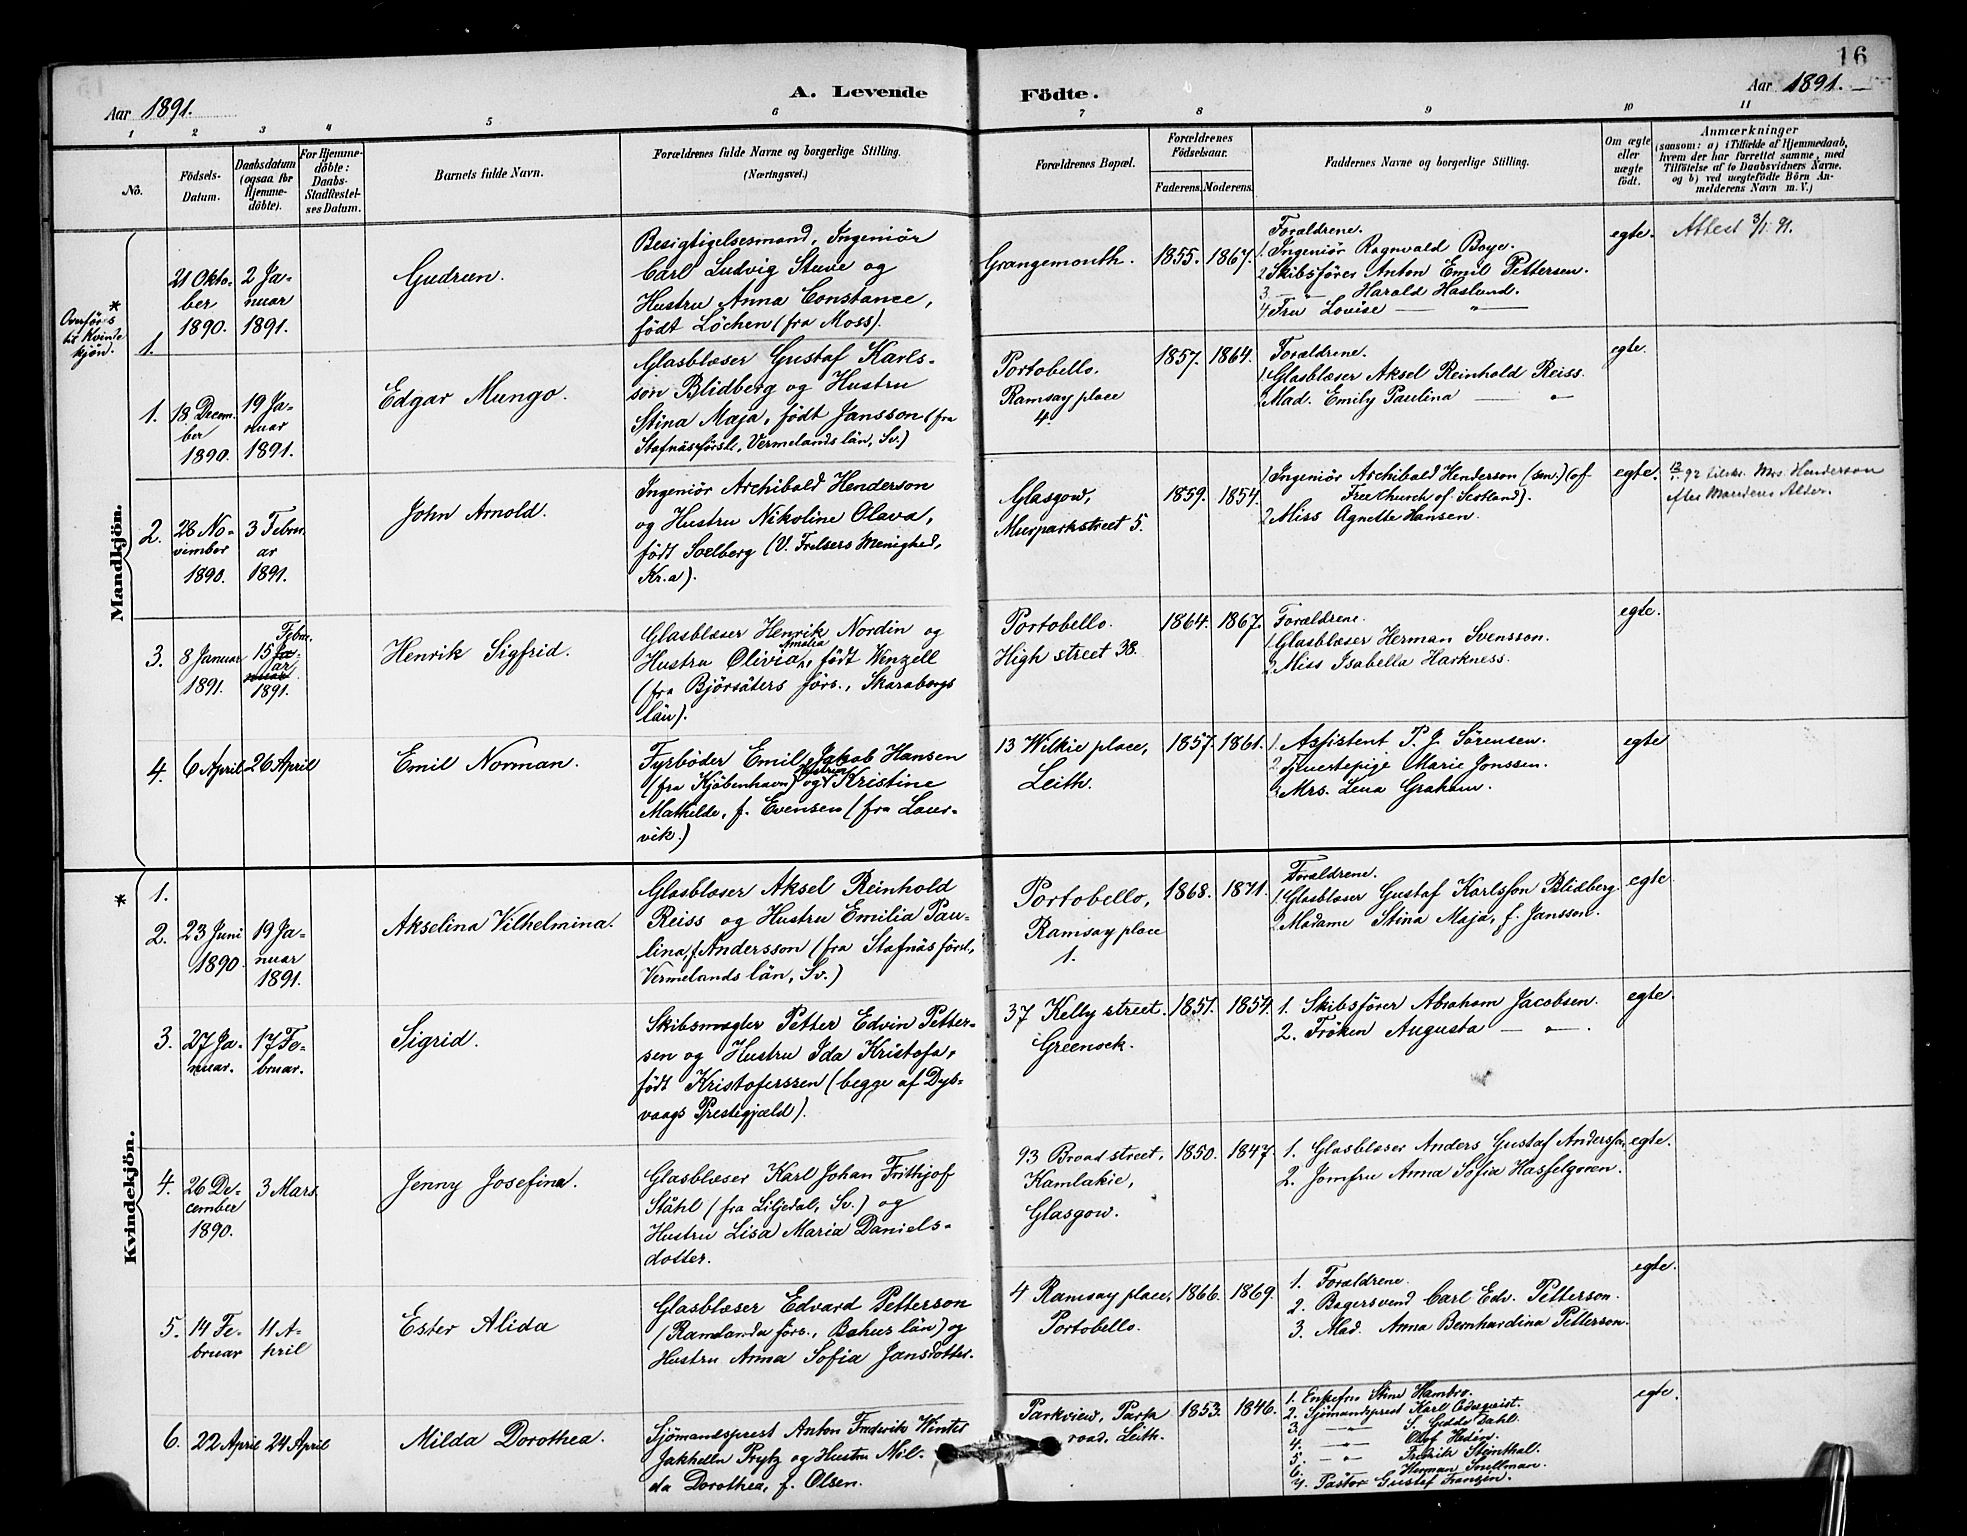 16
Aar 1891.
A. Levende
Födte.
Aar 1891.
1 2 3 4 5 6 7 8 9 10 11
No.
Födsels-
Datum.
Daabsdatum
(ogsaa for
Hjemme-
döbte).
For Hjemme-
döbte:
Daabs-
Stadfæstel-
ses Datum.
Barnets fulde Navn.
Forældrenes fulde Navne og borgerlige Stilling.
(Næringsvei.)
Forældrenes Bopæl.
Forældrenes
Födselsaar.
Faderens. Moderens.
Faddernes Navne og borgerlige Stilling.
Om ægte
eller
uægte
födt.
Anmærkninger
(saasom: a) i Tilfælde af Hjemmedaab,
hvem der har forrettet samme, med
Tilföielse af to Daabsvidners Navne.
og b) ved uægtefödte Börn An-
melderens Navn m. V.)
Mandkjön.
*
Overføres
til Kvinde
kjön.
1.
21 Okto-
ber
1890.
2 Ja-
nuar
1891.
Gudrun.
Besigtigelsesmand, Ingeniör
Carl Ludvig Stuve og
Hustru Anna Constance,
født Löchen (fra Moss).
Grangemouth.
1855. 1867.
Forældrene.
1. Ingeniör Ragnvald Boye.
2. Skibsfører Anton Emil Pettersen.
3. — " — Harald Haslund.
4. Fru Lovise — " —
egte.
Attest 3/1 91.
1.
18 Decem-
ber
1890.
19 Ja-
nuar
1891.
Edgar Mungo.
Glasblæser Gustaf Karls-
son Blidberg og Hustru
Stina Maja, født Jansson (fra
Stafnäs förs., Vermelands län, Sv.)
Portobello.
Ramsay place
4.
1857. 1864.
Forældrene.
1. Glasblæser Aksel Reinhold Reiss.
2. Mad. Emily Paulina — " —
egte.
2.
28 No-
vember
1890.
3 Febru-
ar
1891.
John Arnold.
Ingeniör Archibald Henderson
og Hustru Nikoline Olava,
født Soelberg (V. Frelsers Menighed,
Kr.a).
Glasgow,
Muirparkstreet 5.
1859. 1854.
1. Ingeniör Archibald Henderson (sen.) (of
Free Church of Scotland).
2. Miss Agnette Hansen.
egte.
92 Mrs. Henderson
efter Mandens Alder.
3.
8 Januar
1891.
Febru-
15
ar
1891.
Henrik Sigfrid.
Glasblæser Henrik Nordin og
Amalia
Hustru Olivia, født Wenzell
(fra Björsäters förs., Skaraborgs
län).
Portobello.
High street 38.
1864. 1867.
Forældrene.
1. Glasblæser Herman Svensson.
2. Miss Isabella Harkness.
egte.
4.
6 April
26 April
Emil Norman.
Fyrböder Emil Jakob Hansen
Hustru
(fra Kjöbenhavn) og Kristine
Mathilde, f. Evensen (fra Laur-
vik.)
13 Wilkie place,
Leith.
1857. 1861.
1. Assistent P. J. Sørensen.
2. Tjenestepige Marie Jonssen.
3. Mrs. Lena Graham.
egte
Kvindekjön.
*
1.
2.
23 Juni
1890.
19 Ja-
nuar
1891.
Akselina Vilhelmina.
Glasblæser Aksel Reinhold
Reiss og Hustru Emilia Pau-
lina, f. Andersson (fra Stafnäs förs.,
Vermelands län, Sv.)
Portobello,
Ramsay place
1.
1868. 1871.
Forældrene.
1. Glasblæser Gustaf Karlsson Blidberg
2. Madame Stina Maja, f. Jansson.
egte
3.
27 Ja-
nuar.
17 Fe-
bruar.
Sigrid.
Skibsmægler Petter Edvin Petter-
sen og Hustru Ida Kristofa,
født Kristoferssen (begge af Dyb-
vaags Prestegjæld).
37 Kelly street.
Greenock.
1851. 1854.
1. Skibsfører Abraham Jacobsen.
2. Fröken Augusta — " —
egte.
4.
26 De-
cember
1890.
3 Mars.
Jenny Josefina.
Glasblæser Karl Johan Frithjof
Ståhl (fra Liljedal, Sv.) og
Hustru Lisa Maria Daniels-
dotter.
93 Broad street,
Kamlakie,
Glasgow.
1850. 1847.
1. Glasblæser Anders Gustaf Anderss.
2. Jomfru Anna Sofia Hasselgoren.
egte.
5.
14 Fe-
bruar
11 A-
pril
Ester Alida
Glasblæser Edvard Petterson
(Ramlanda förs., Bahus län) og
Hustru Anna Sofia Jansdotter.
4 Ramsay place,
Portobello.
1866. 1869.
1. Forældrene.
2. Bagersvend Carl Edv. Petterson.
3. Mad. Anna Bernhardina Petterson.
egte.
6.
22 April
24 April
Milda Dorothea.
Sjömandsprest Anton Fredrik Winter
Jakhelln Prytz og Hustru Mil-
da Dorothea, f. Olsen.
Parkview, Park
road, Leith.
1853. 1846.
1. Enkefru Stine Hambro.
2. Sjömandsprest Karl Edquist.
3. — " — S. Gedde Dahl.
4. — " — Olof Hedén.
5. — " — Fredrik Steinthal.
6. Herman Snellman.
7. Pastor Gustaf Franzén.
egte.